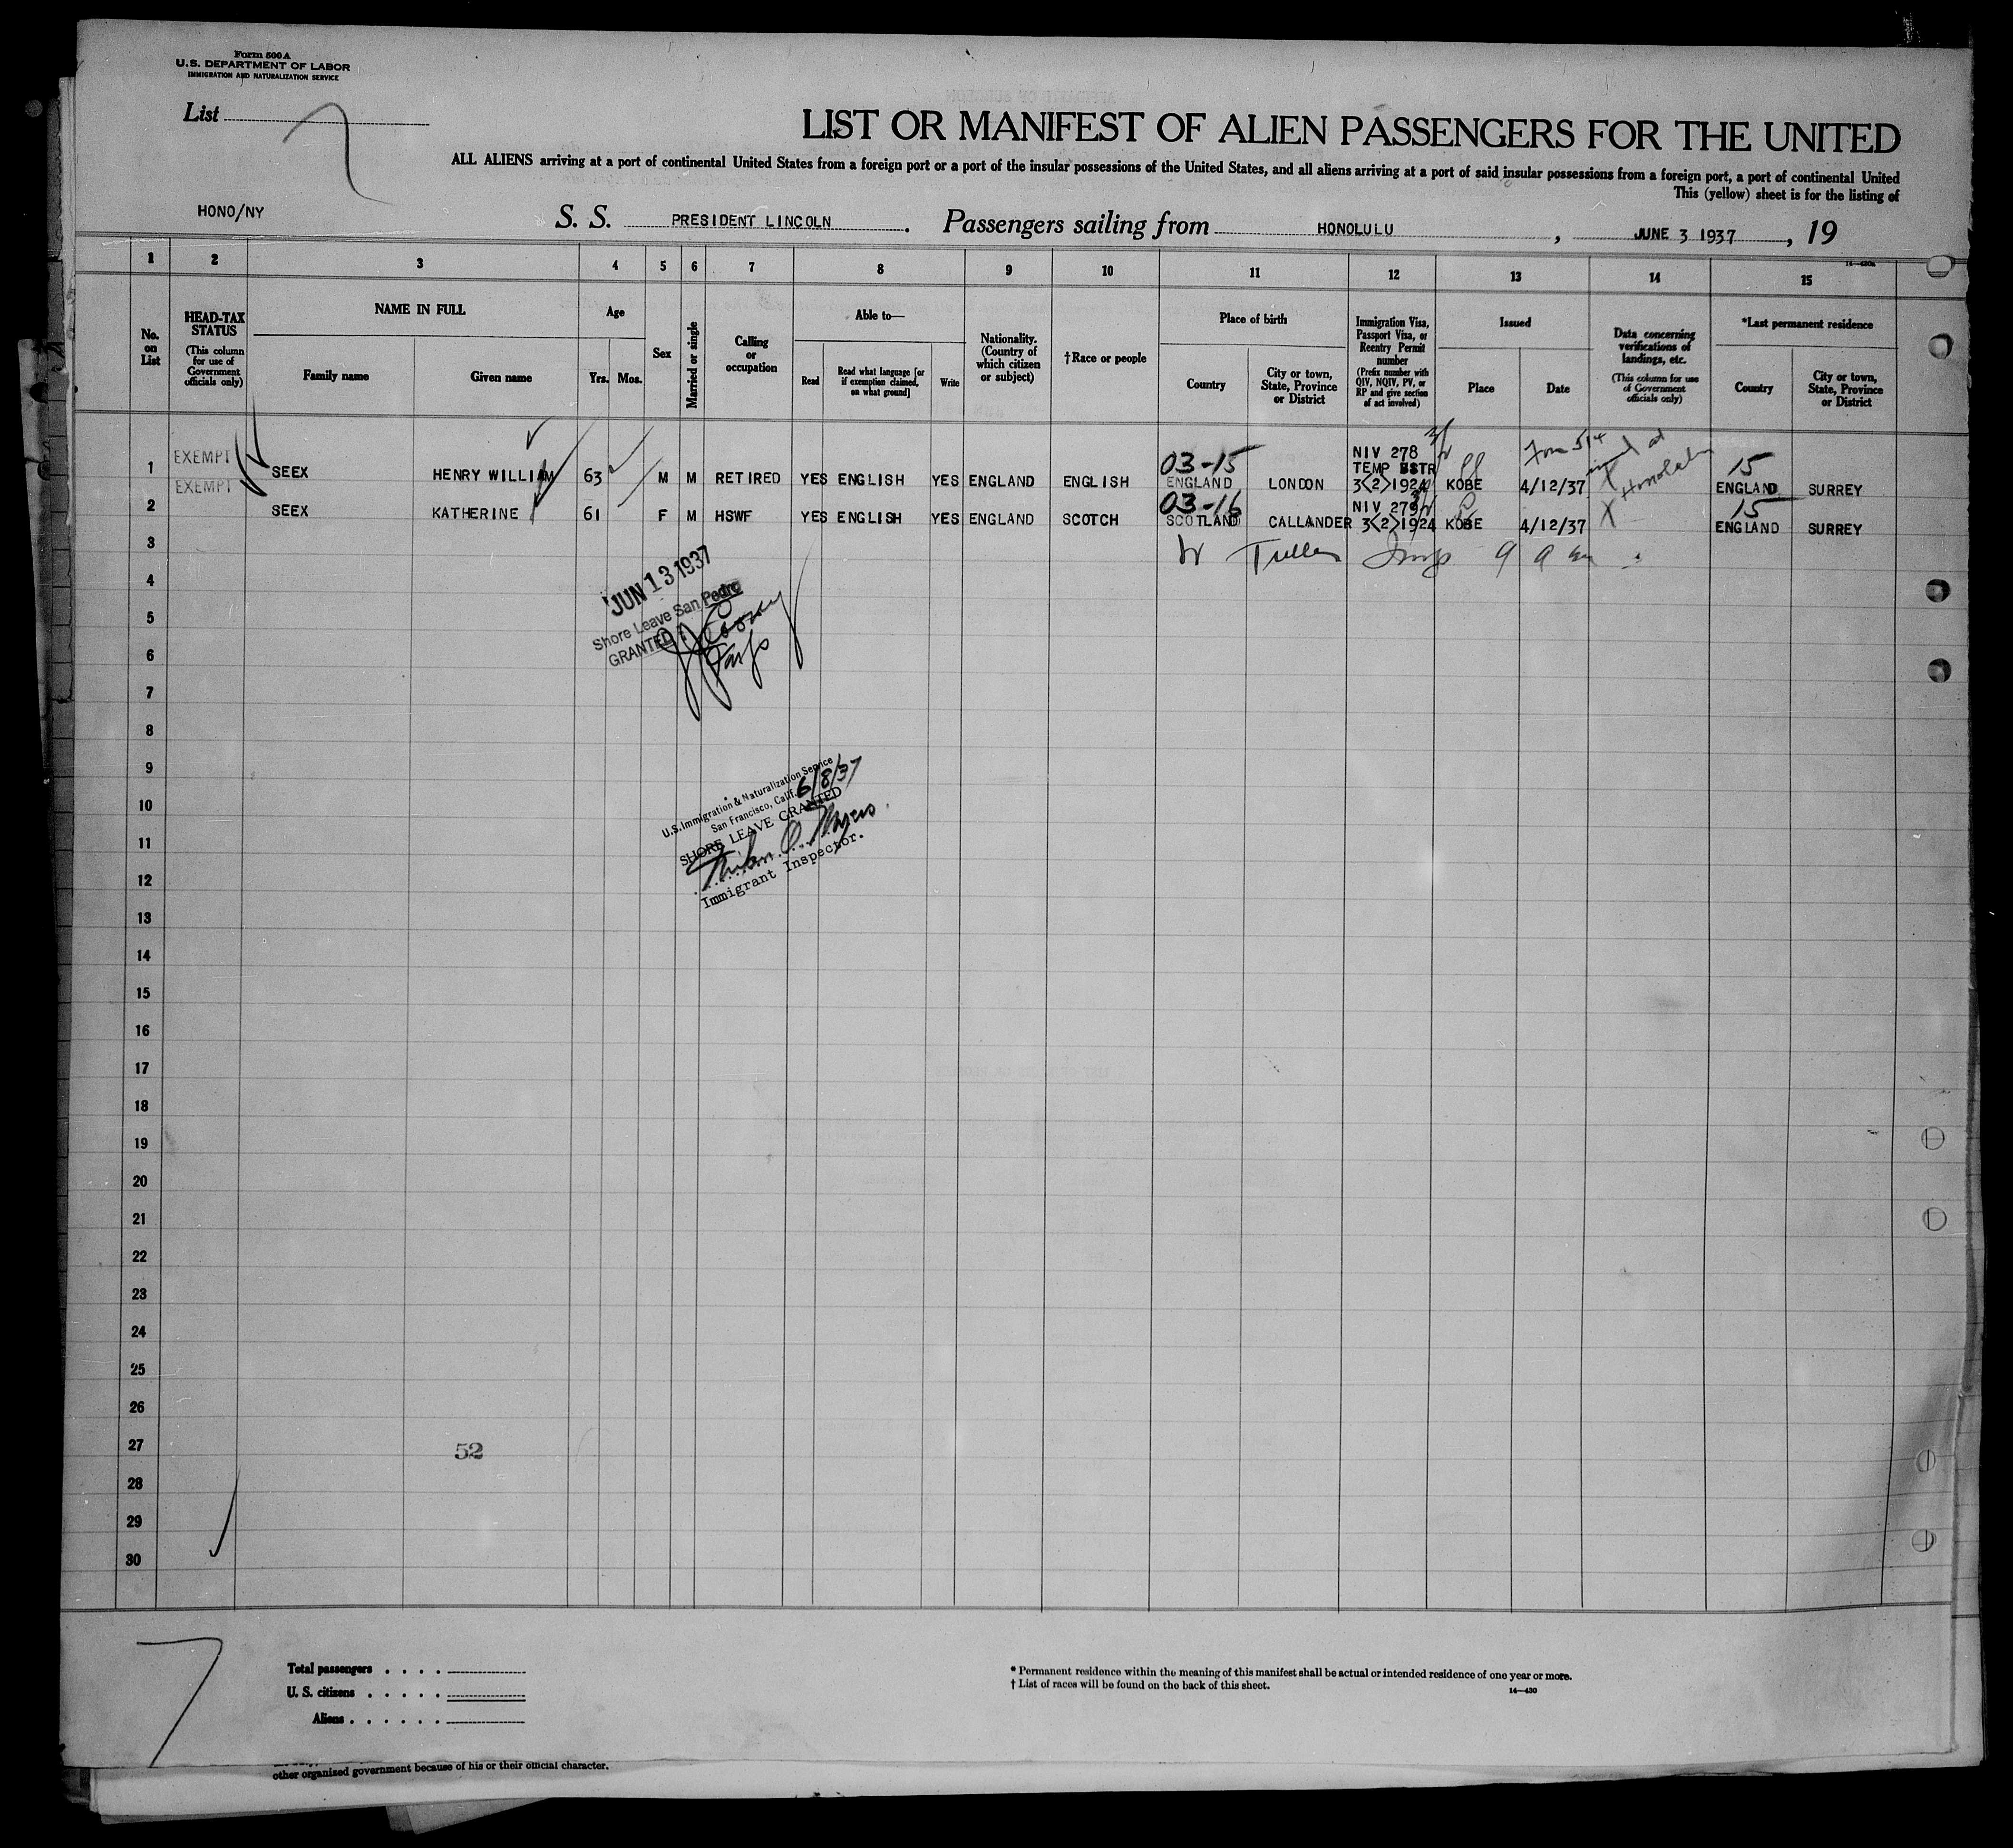 Form 500 A
U.S. DEPARTMENT OF LABOR
IMMIGRATION AND NATURALIZATION SERVICE
List 7
LIST OR MANIFEST OF ALIEN PASSENGERS FOR THE UNITED
ALL ALIENS arriving at a port of continental United States from a foreign port or a port of the insular possessions of the United States, and all aliens arriving at a port of said insular possessions from a foreign port, a port of continental United
This (yellow) sheet is for the listing of
HONO/NY
S. S. PRESIDENT LINCOLN. Passengers sailing from HONOLULU, JUNE 3 1937, 19
1 2 3 4 5 6 7 8 9 10 11 12 13 14 15
No. on List
HEAD-TAX STATUS
(This column for use of Government officials only)
NAME IN FULL
Family name
Given name
Age
Yrs. Mos.
Sex
Married or single
Calling or occupation
Able to—
Read
Read what language [or if exemption claimed, on what ground]
Write
Nationality. (Country of which citizen or subject)
†Race or people
Place of birth
Country
City or town, State, Province or District
Immigration Visa, Passport Visa, or Reentry Permit number
(Prefix number with QIV, NQIV, PV, or RP and give section of act involved)
Issued
Place
Date
Data concerning verifications of landings, etc.
(This column for use of Government officials only)
*Last permanent residence
Country
City or town, State, Province or District
Form 514 issued at Honolulu
NIV 278
EXEMPT 03-15 TEMP VSTR 15
1 SEEX HENRY WILLIAM 63 M M RETIRED YES ENGLISH YES ENGLAND ENGLISH ENGLAND LONDON 3(2)1924 KOBE 4/12/37 X ENGLAND SURREY
EXEMPT 03-16 NIV 279 15
2 SEEX KATHERINE 61 F M HSWF YES ENGLISH YES ENGLAND SCOTCH SCOTLAND CALLANDER 3(2)1924 KOBE 4/12/37 X ENGLAND SURREY
3
4
JUN 13 1937
Shore Leave San Pedro
GRANTED
5
6
7
8
9
U.S. Immigration & Naturalization Service
San Francisco, Calif. 6/8/37
SHORE LEAVE GRANTED
Immigrant Inspector.
10
11
12
13
14
15
16
17
18
19
20
21
22
23
24
25
26
27 52
28
29
30
7
Total passengers . . . .
U. S. citizens . . . . .
Aliens . . . . . .
* Permanent residence within the meaning of this manifest shall be actual or intended residence of one year or more.
† List of races will be found on the back of this sheet.
14—430
other organized government because of his or their official character.